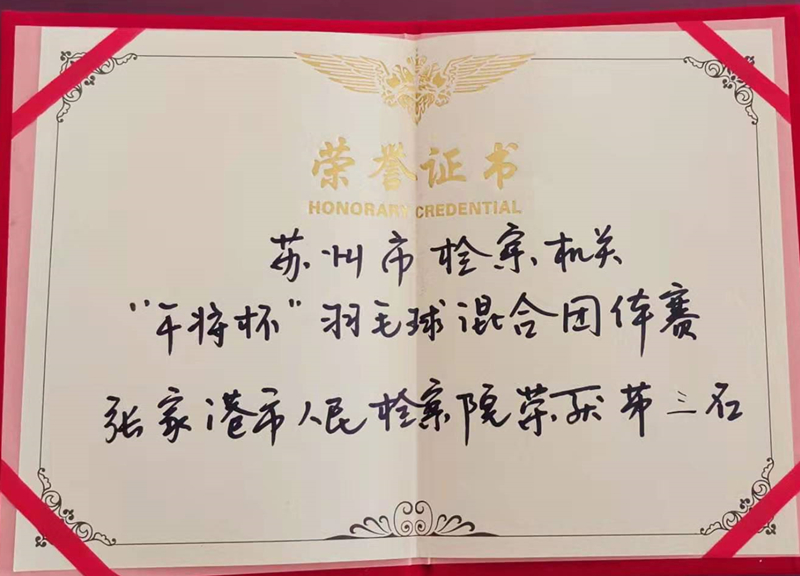 荣誉证书
HONORARY CREDENTIAL
苏州市检察机关
“干将杯”羽毛球混合团体赛
张家港市人民检察院荣获第三名